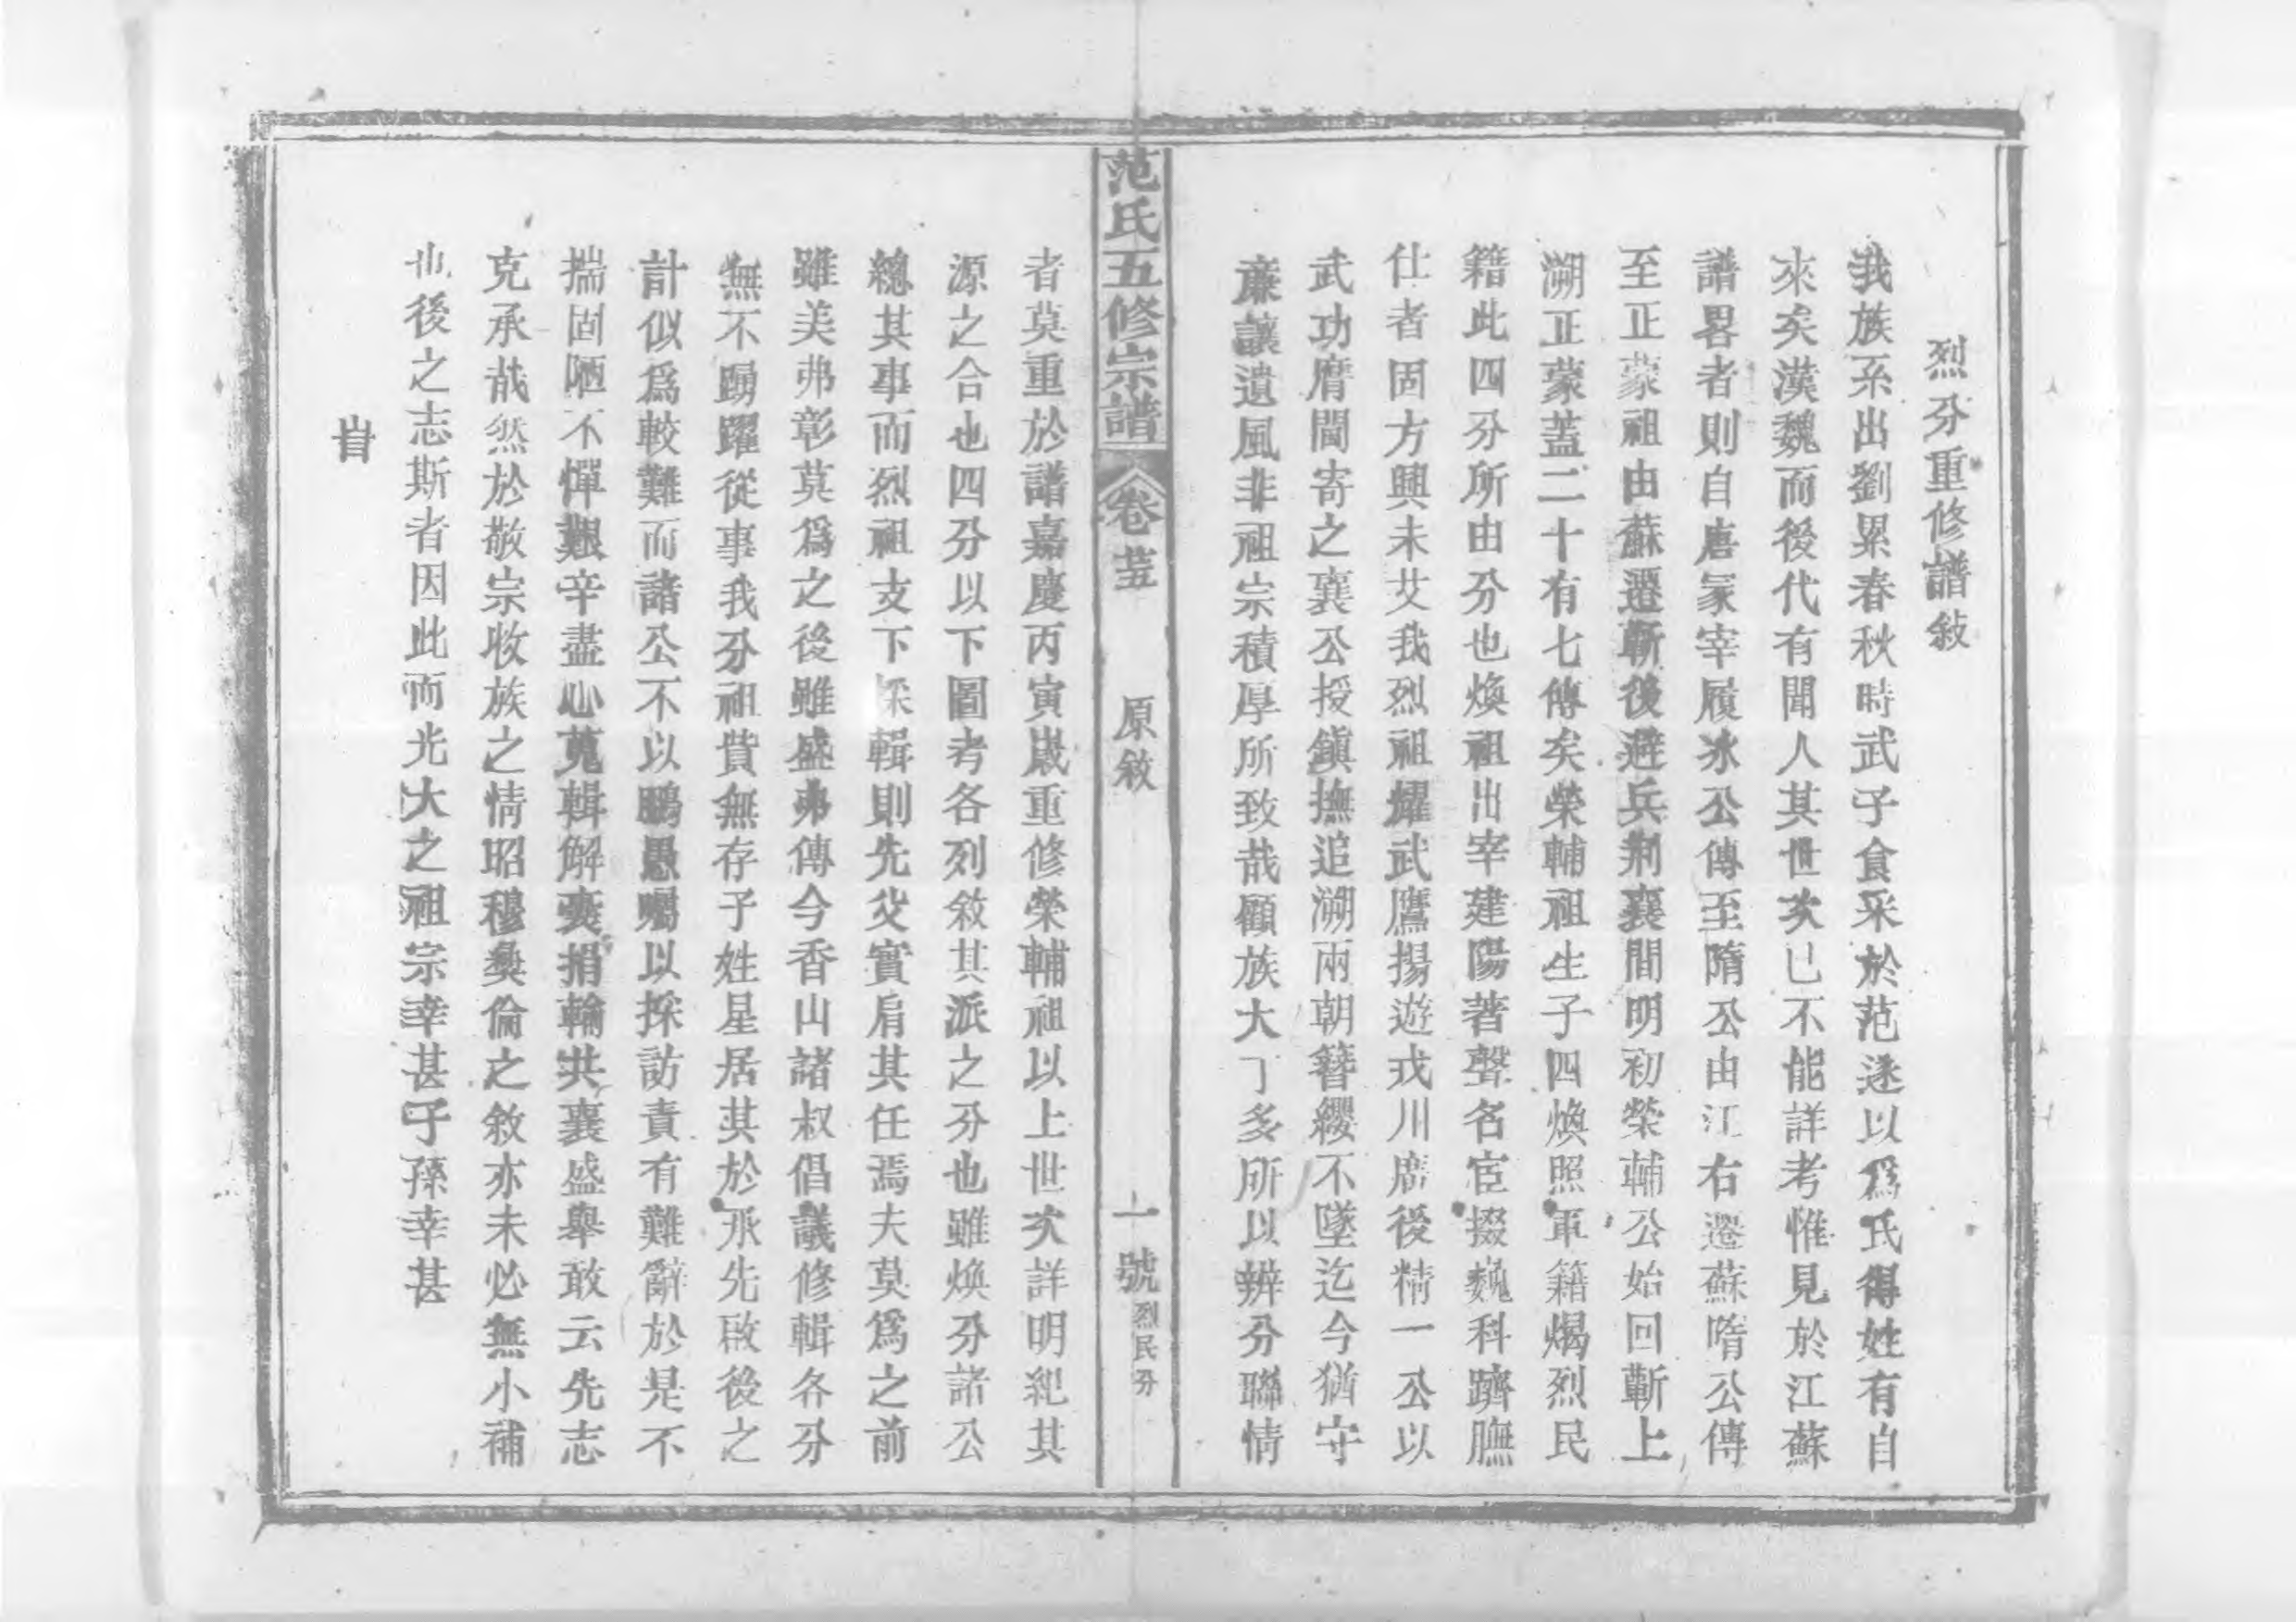 烈分重修譜敍
我族系出劉累春秋時武子食采於范遂以爲氏得姓有自
來矣漢魏而後代有聞人其世次已不能詳考惟見於江蘇
譜畧者則自唐冢宰履冰公傳至隋公由江右遷蘇隋公傳
至正蒙祖由蘇遷蘄後避兵荆襄間明初榮輔公始回蘄上
溯正蒙蓋二十有七傳矣榮輔祖生子四煥照軍籍煬烈民
籍此四分所由分也煥祖出宰建陽著聲名宦掇巍科躋膴
仕者固方興未艾我烈祖耀武鷹揚遊戎川廣後精一公以
武功膺閫寄之襄公授鎮撫追溯兩朝簪纓不墜迄今猶守
廉讓遺風非祖宗積厚所致哉顧族大丁多所以辨分聯情
范氏五修宗譜 卷苦 原敘 一號 烈民分
者莫重於譜嘉慶丙寅歲重修榮輔祖以上世次詳明紀其
源之合也四分以下圖考各列敘其派之分也雖煥分諸公
總其事而烈祖支下採輯則先父實肩其任焉夫莫爲之前
雖美弗彰莫爲之後雖盛弗傳今香山諸叔倡議修輯各分
無不踴躍從事我分祖貲無存子姓星居其於承先啟後之
計似爲較難而諸公不以鵬愚囑以採訪責有難辭於是不
揣固陋不憚艱辛盡心蒐輯解囊捐輸共襄盛舉敢云先志
克承哉然於敬宗收族之情昭穆彝倫之敘亦未必無小補
也後之志斯者因此而光大之祖宗幸甚子孫幸甚
旹